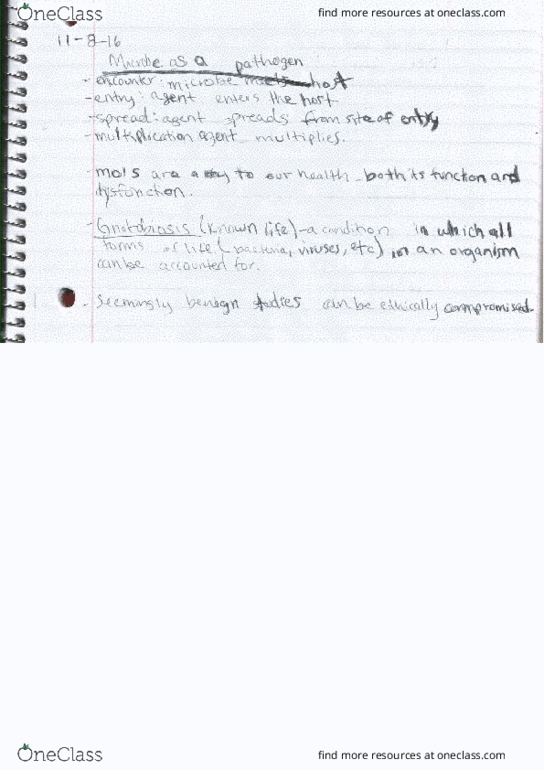 OneClass find more resources at oneclass.com
11-8-16
Microbe as a pathogen
- encounter: microbe meets host
- entry: agent enters the host
- spread: agent spreads from site of entry
- multiplication agent multiplies.
- mots are a key to our health - both its function and
dysfunction.
- Gnotobiosis (known life) - a condition in which all
forms of life (bacteria, viruses, etc) in an organism
can be accounted for.
- Seemingly benign studies can be ethically compromised.
OneClass find more resources at oneclass.com